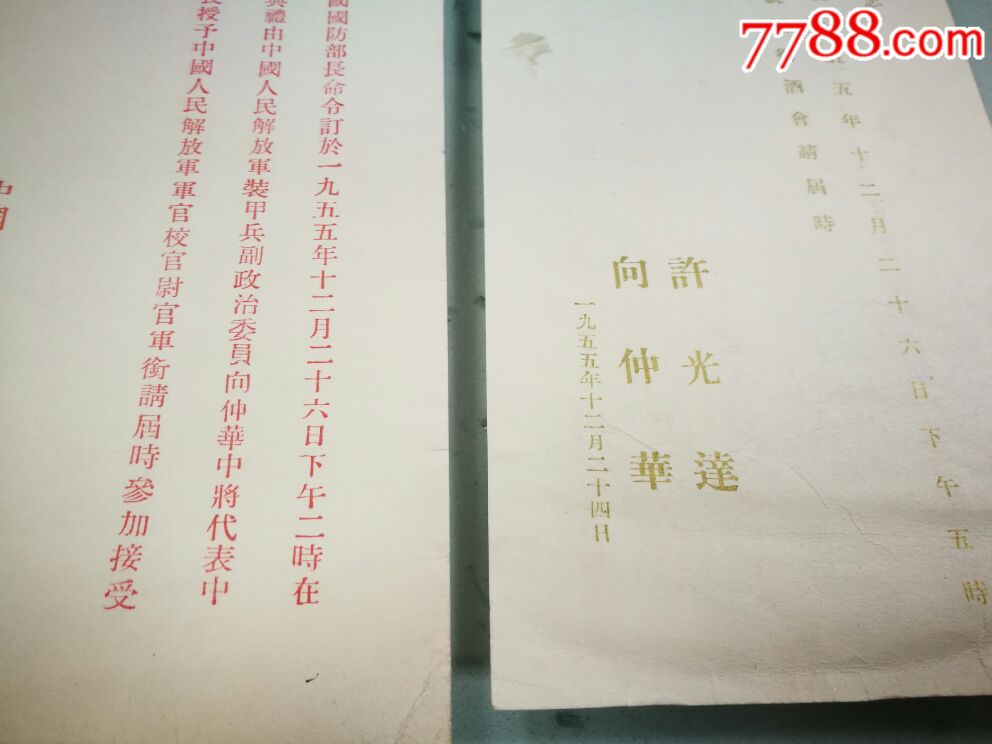 7788.com
國國防部長命令訂於一九五五年十二月二十六日下午二時在
典禮由中國人民解放軍裝甲兵副政治委員向仲華中將代表中
長授予中國人民解放軍軍官校官尉官軍銜請屆時參加接受
五五年十二月二十六日下午五時
酒會請屆時
許光達
向仲華
一九五五年十二月二十四日